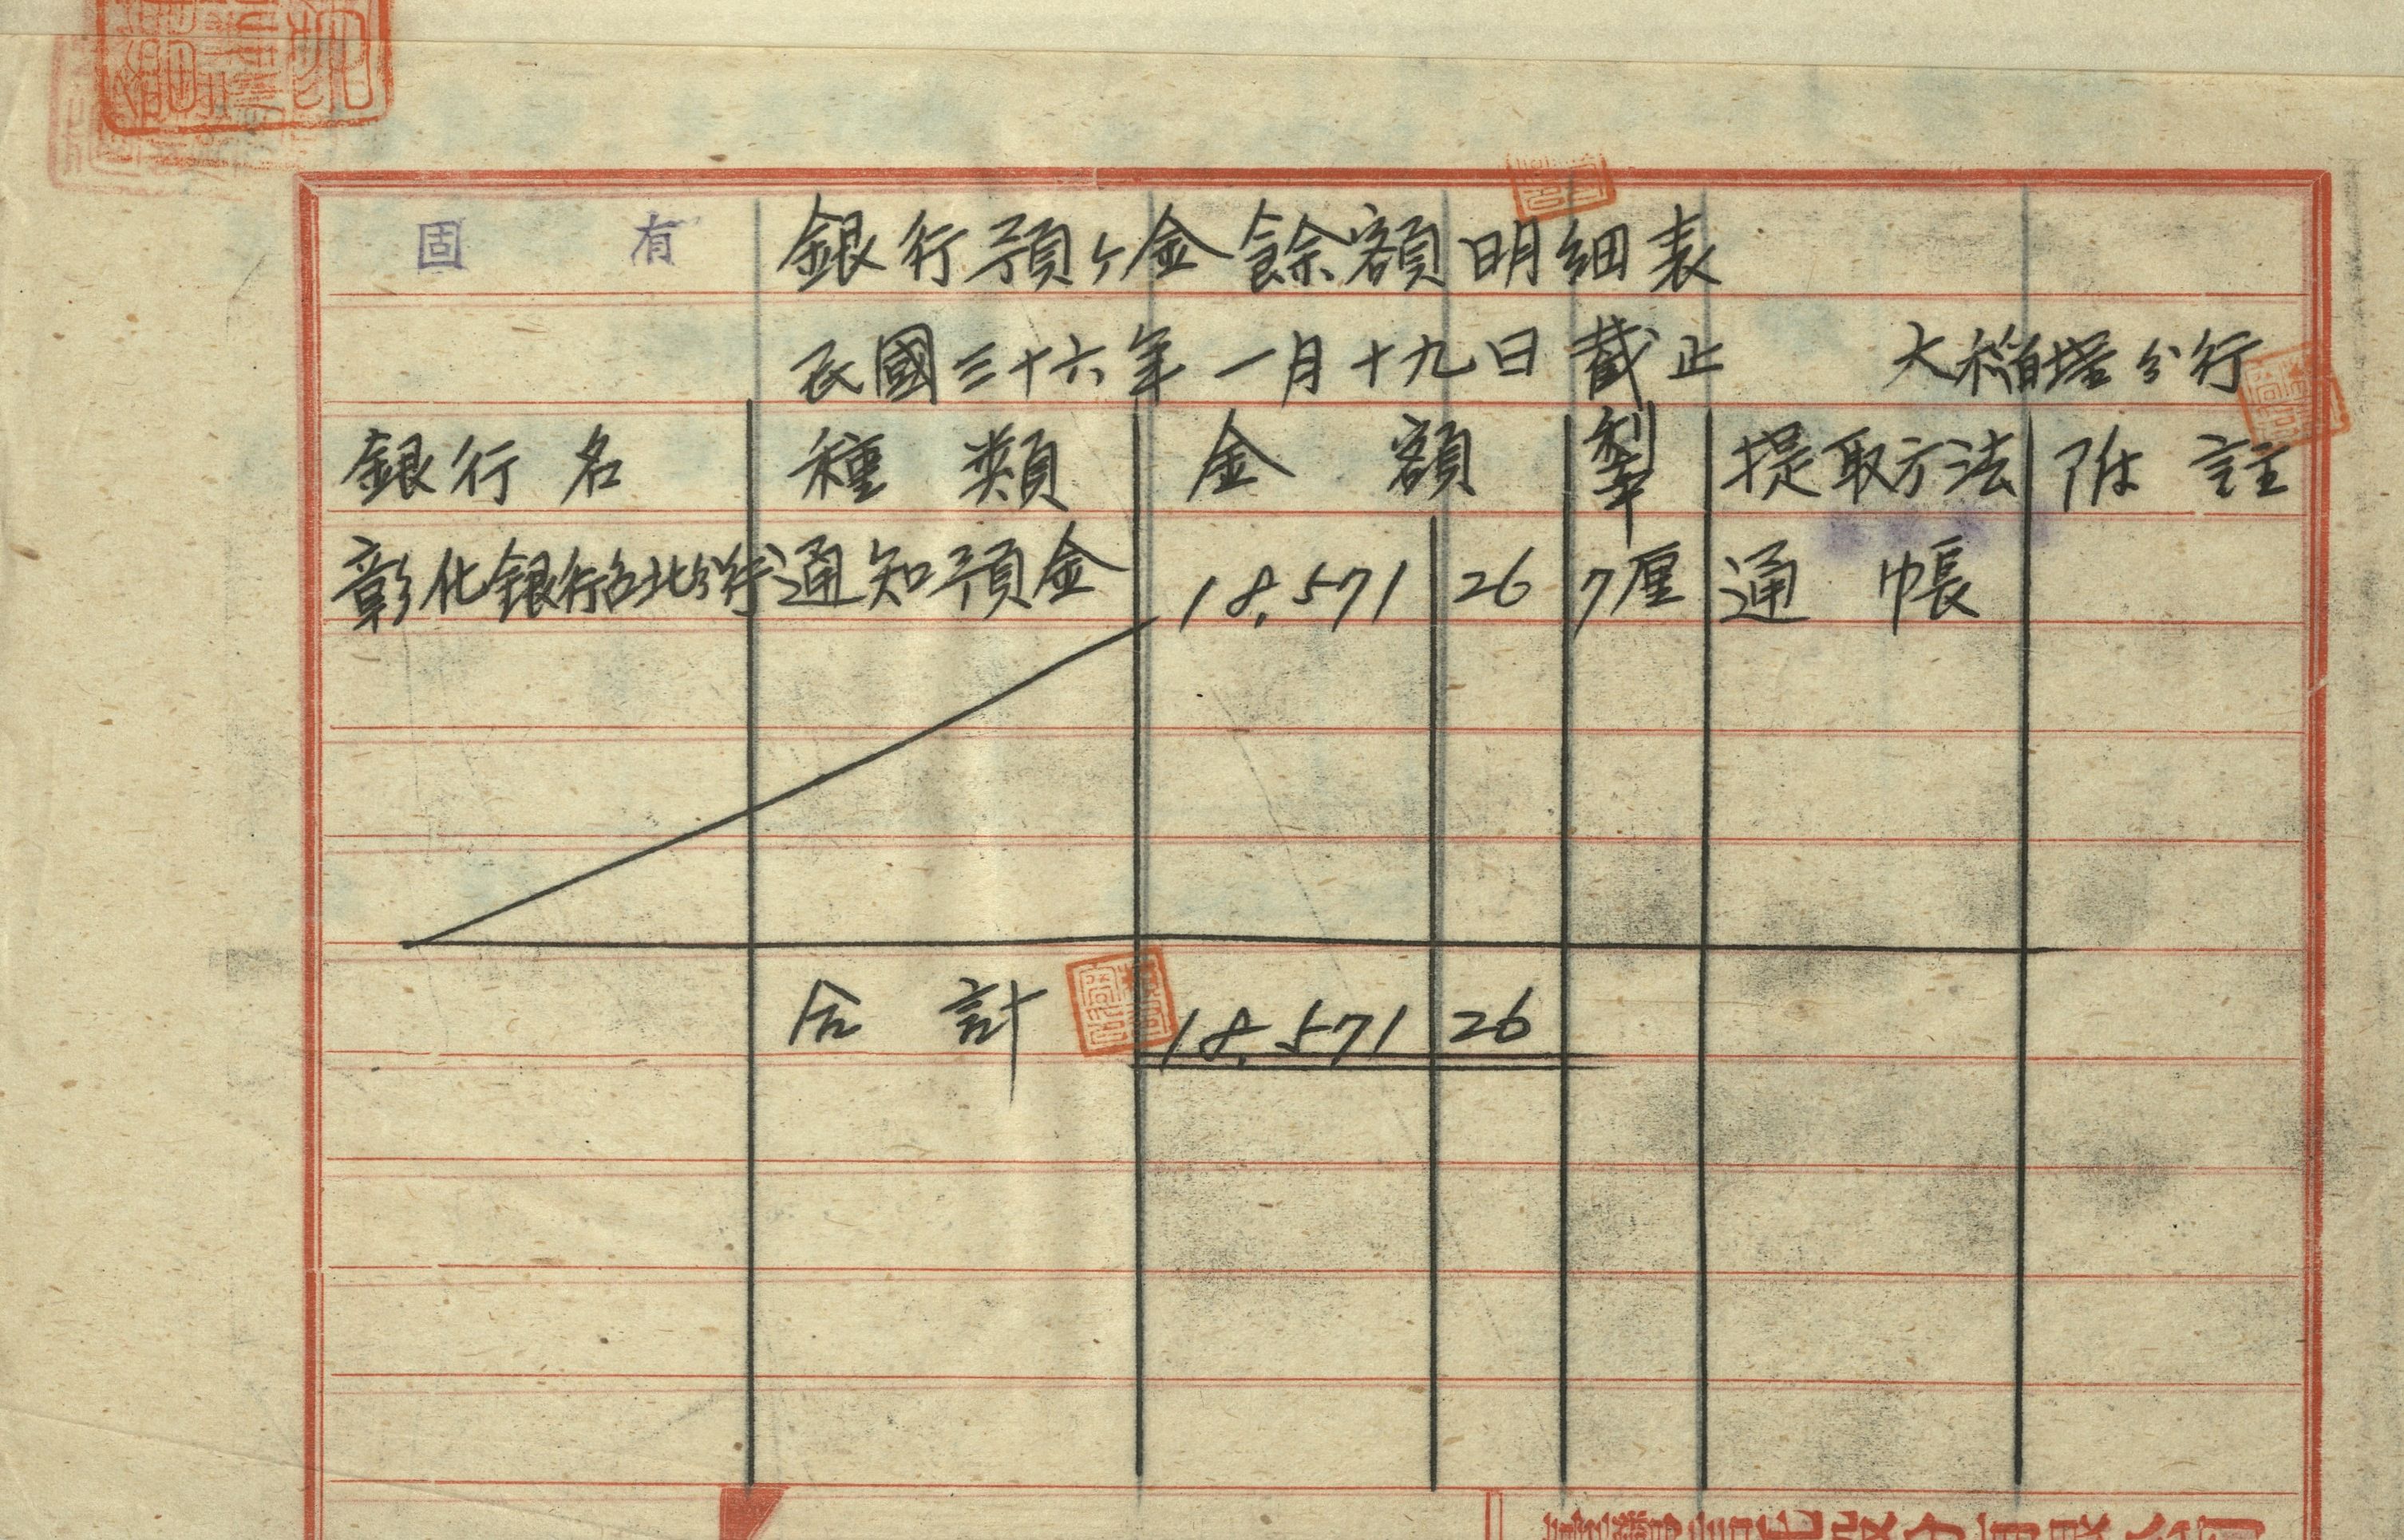 固有 銀行預ヶ金餘額明細表
民國三十六年一月十九日截止 大稲埕分行
銀行名 種類 金額 利率 提取方法 附註
彰化銀行台北分行 通知預金 18,571 26 7厘 通帳
合計 18,571 26